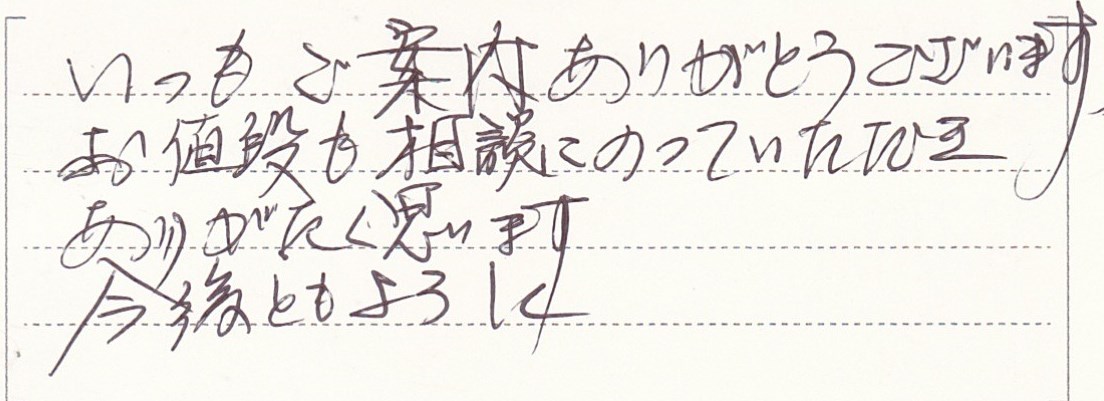 いつもご案内ありがとうございます、
お値段も相談にのっていただき
ありがたく思います
今後ともよろしく